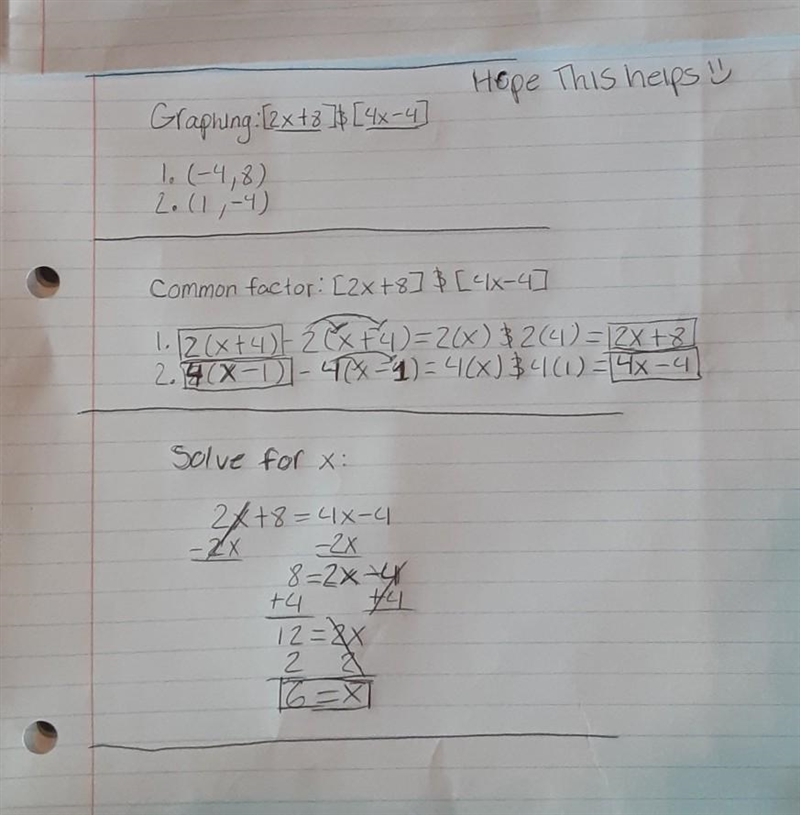 Hope This helps
Graphing: [2x+8] & [4x-4]
1. (-4,8)
2. (1,-4)
Common factor: [2x+8] & [4x-4]
1. 2(x+4) - 2(x+4) = 2(x) & 2(4) = 2x+8
2. 4(x-1) - 4(x-1) = 4(x) & 4(1) = 4x-4
Solve for x:
2x+8=4x-4
-2x -2x
8=2x-4
+4 +4
12=2x
2 2
6=x